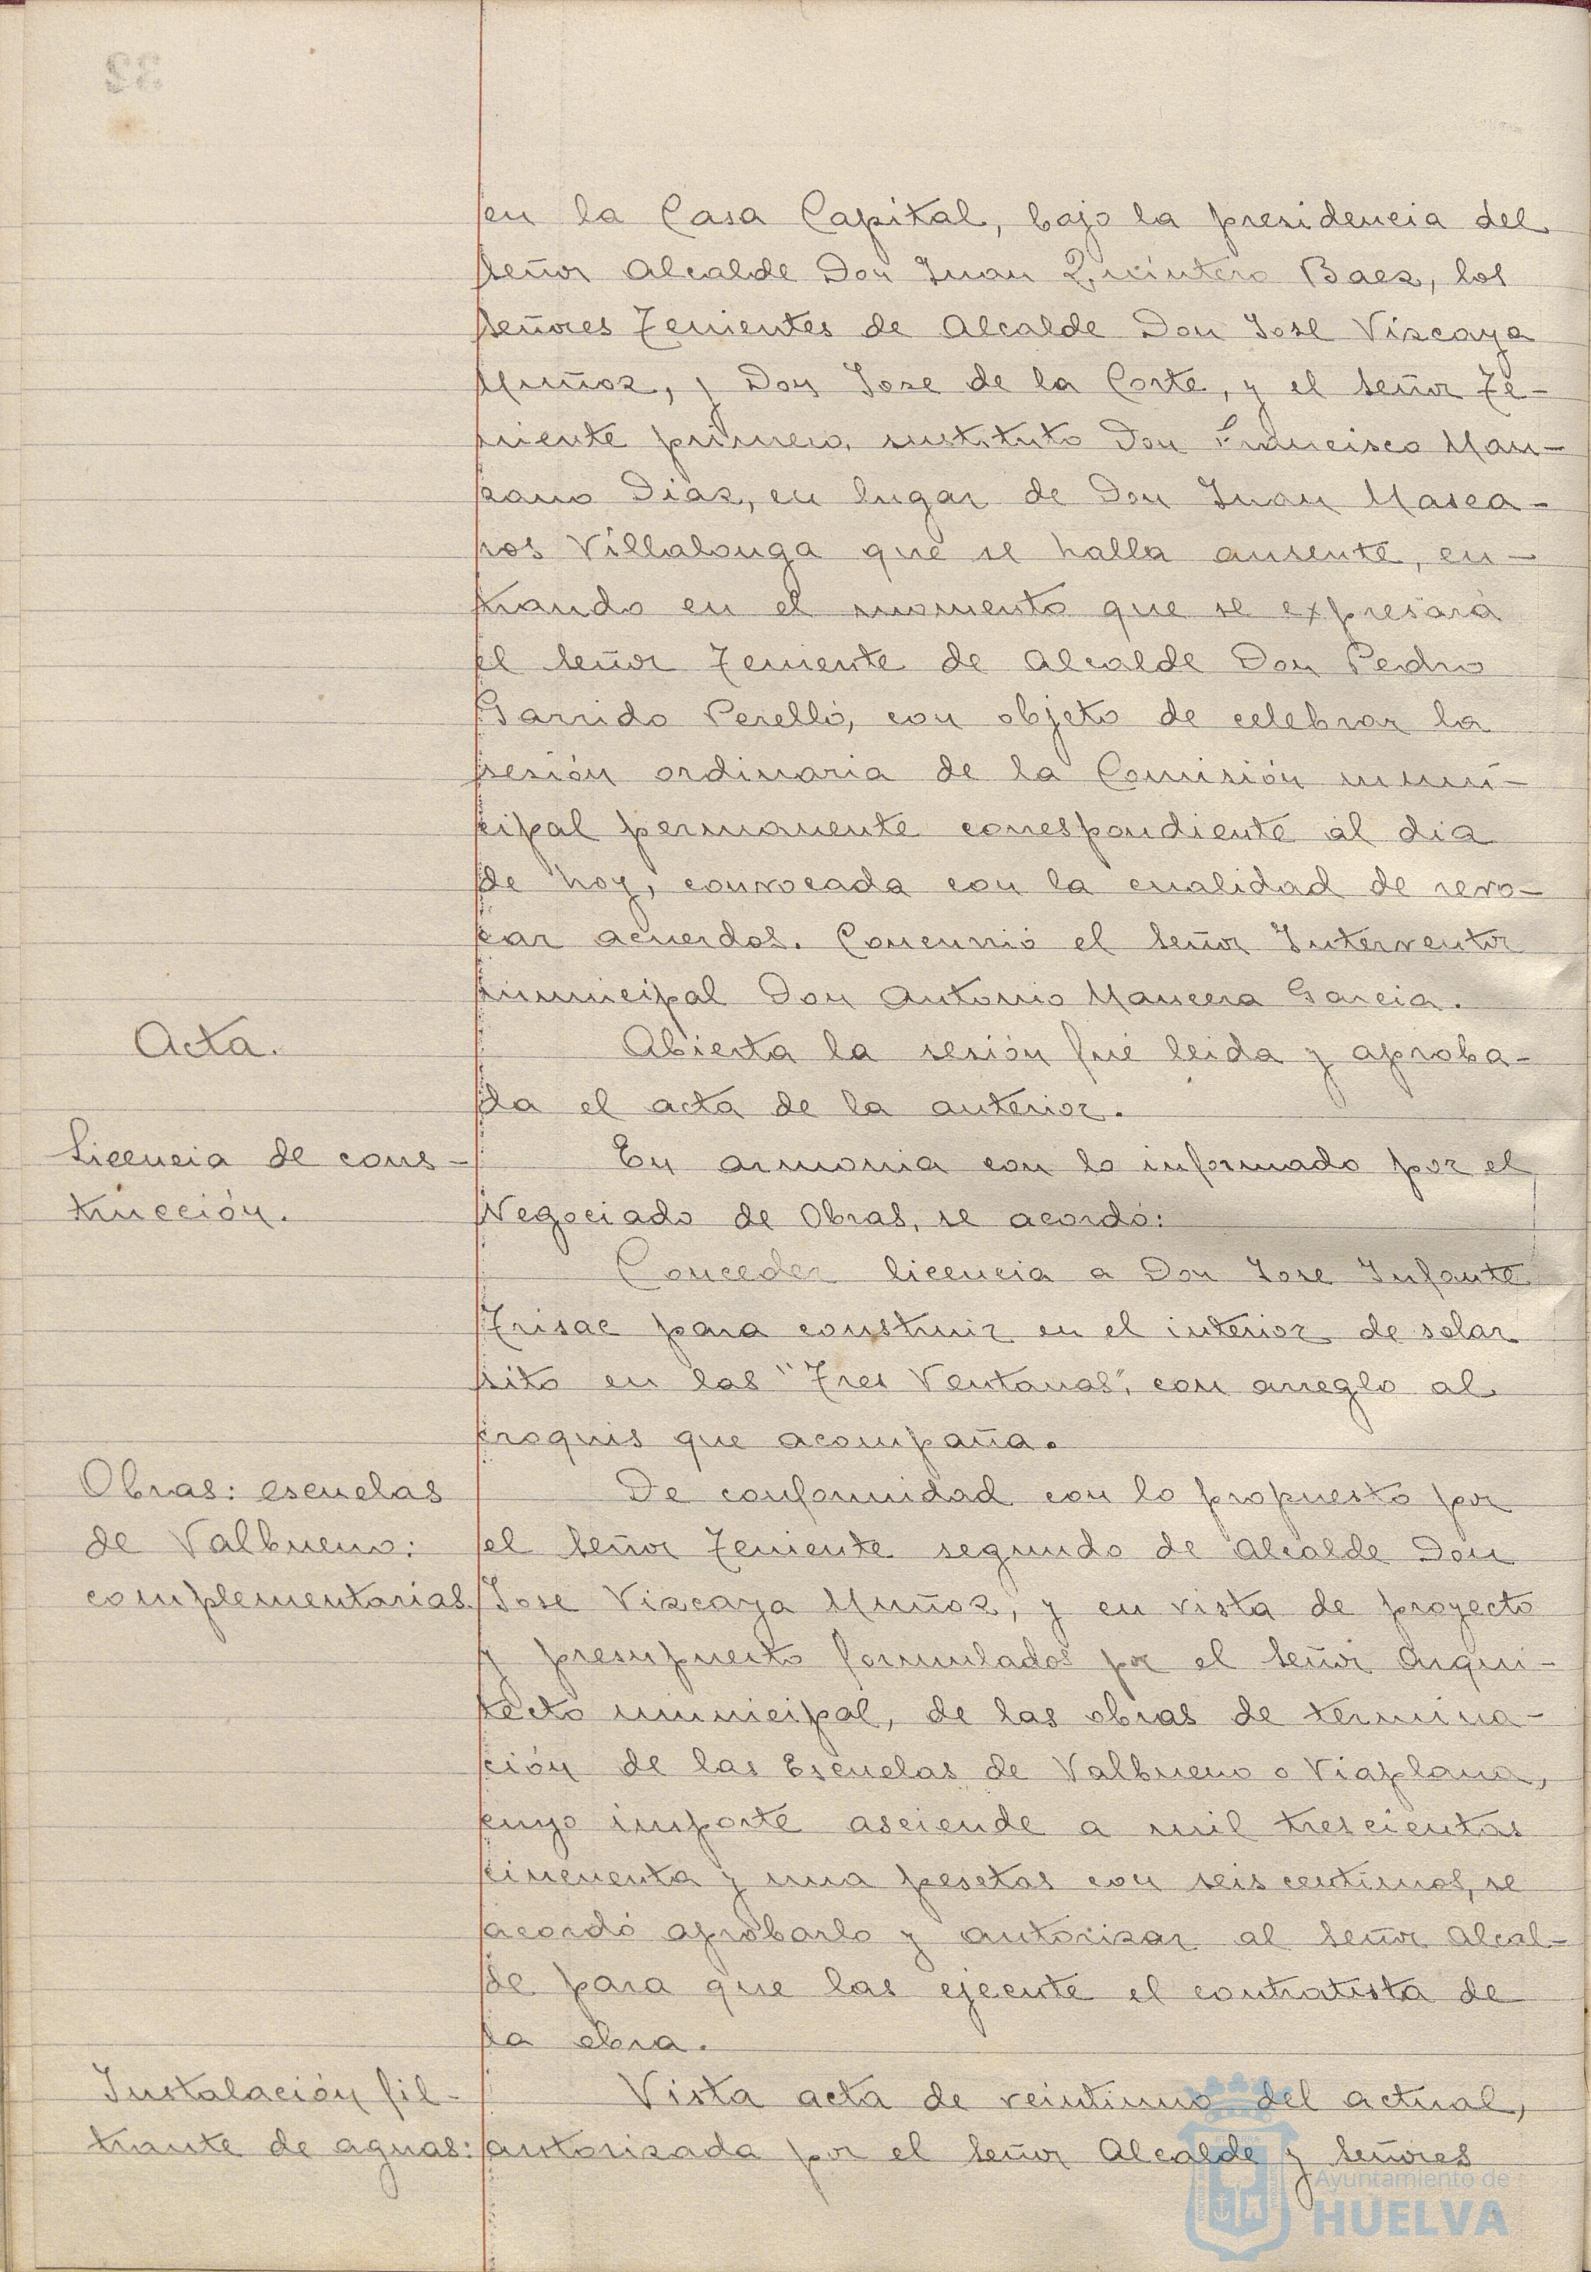 en la Casa Capital, bajo la presidencia del
Señor Alcalde Don Juan Quintero Baez, los
Señores Tenientes de Alcalde Don José Vizcaya
Muñoz, y Don Jose de la Corte, y el Señor Te-
niente primero, sustituto Don Francisco Man-
zano Diaz, en lugar de Don Juan Masca-
ros Villalonga que se halla ausente, en-
trando en el momento que se expresará
el Señor Teniente de Alcalde Don Pedro
Garrido Perelló, con objeto de celebrar la
sesión ordinaria de la Comisión muni-
cipal permanente correspondiente al dia
de hoy, convocada con la cualidad de revo-
car acuerdos. Concurrió el Señor Interventor
municipal Don Antonio Mancera Garcia.
Acta.
Abierta la sesión fué leida y aproba-
da el acta de la anterior.
Licencia de cons-
trucción.
En armonia con lo informado por el
Negociado de Obras, se acordó:
Conceder licencia a Don Jose Infante
Trisac para construir en el interior de solar
sito en las "Tres Ventanas", con arreglo al
croquis que acompaña.
Obras: escuelas
de Valbueno:
complementarias.
De conformidad con lo propuesto por
el Señor Teniente segundo de Alcalde Don
Jose Vizcaya Muñoz, y en vista de proyecto
y presupuesto formulados por el Señor Arqui-
tecto municipal, de las obras de termina-
ción de las Escuelas de Valbueno o Viaplana,
cuyo importe asciende a mil trescientas
cincuenta y una pesetas con seis centimos, se
acordó aprobarlo y autorizar al Señor Alcal-
de para que las ejecute el contratista de
la obra.
Instalación fil-
trante de aguas:
Vista acta de veintiuno del actual,
autorizada por el Señor Alcalde y Señores
Ayuntamiento de
HUELVA